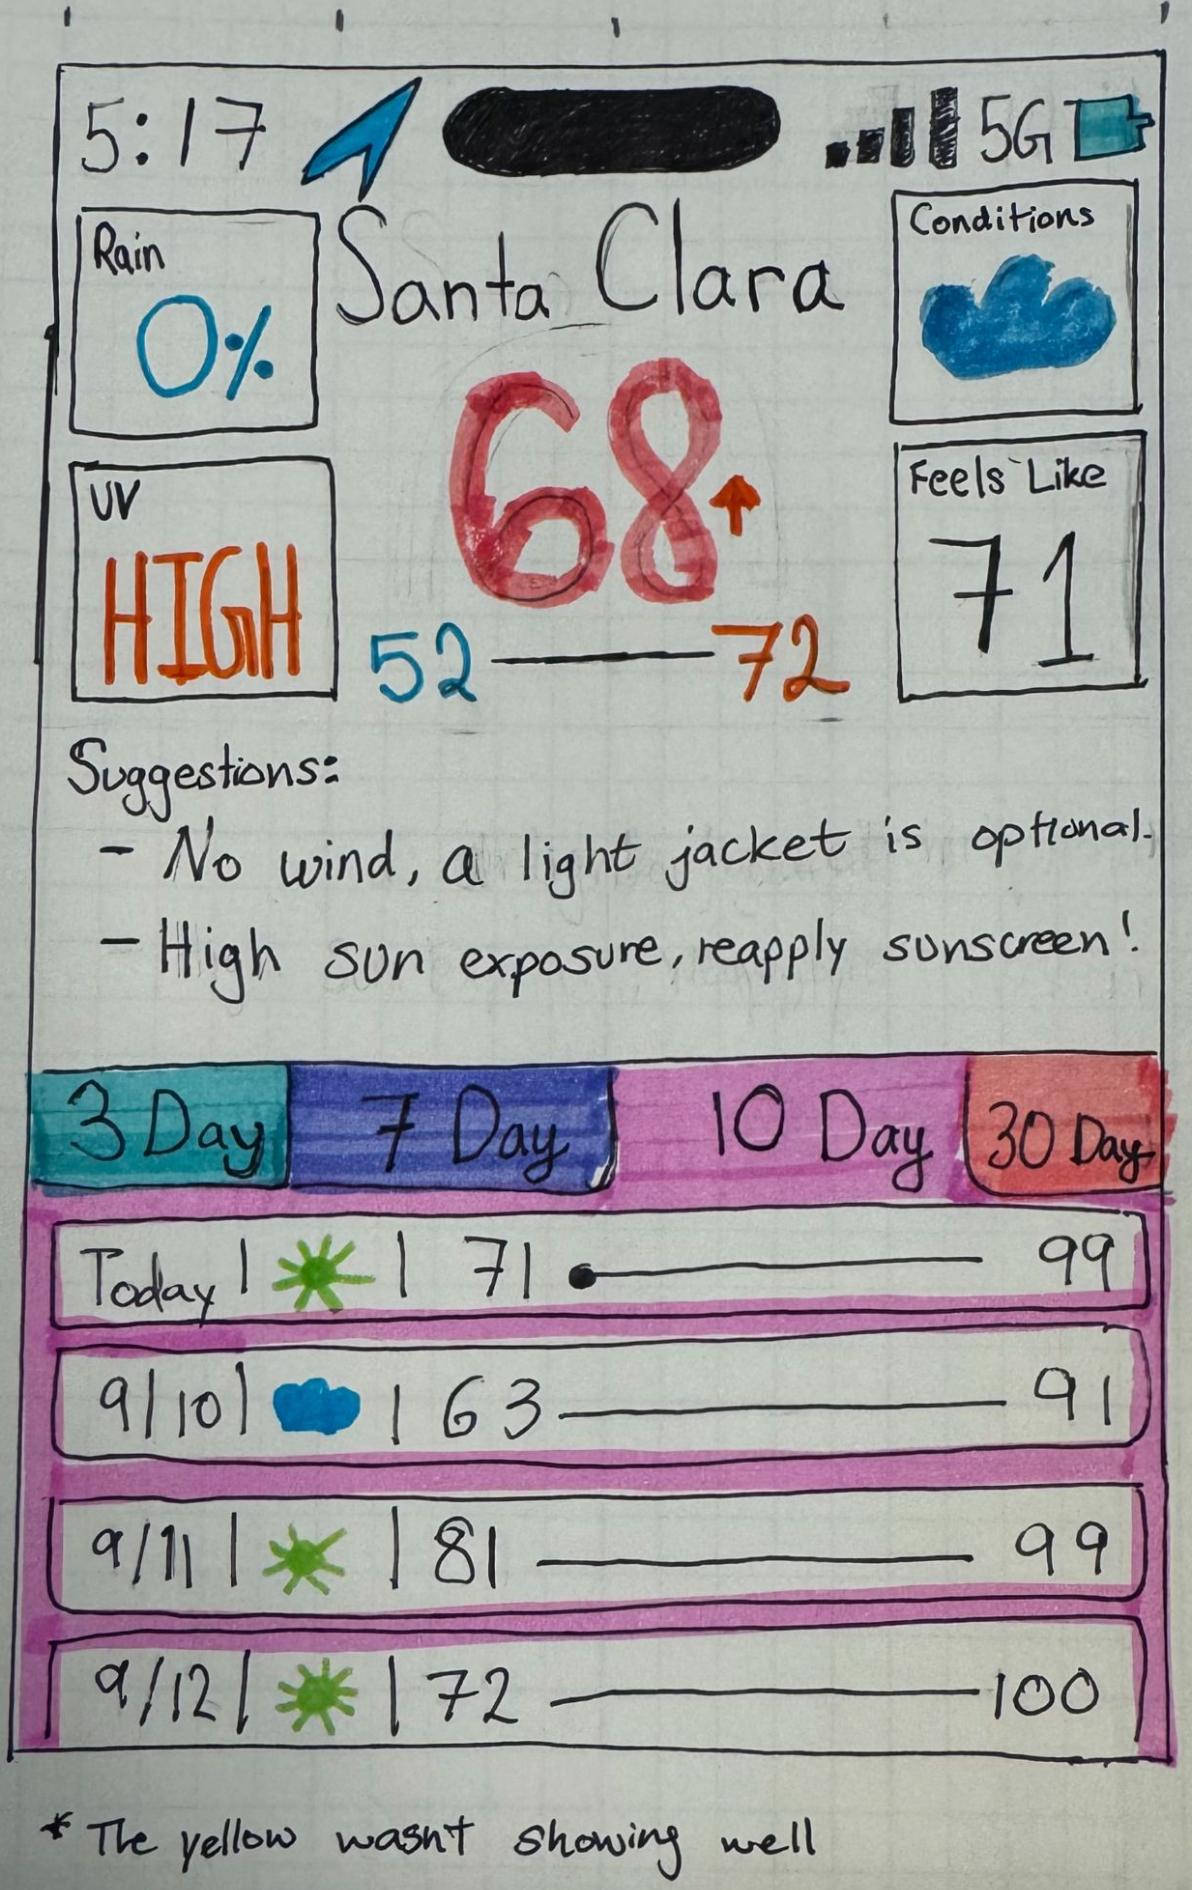 5:17 5G
Rain
0%
Santa Clara
Conditions
68
UV
HIGH
Feels Like
71
52 — 72
Suggestions:
- No wind, a light jacket is optional.
- High sun exposure, reapply sunscreen!
3 Day 7 Day 10 Day 30 Day
Today | | 71 99
9/10 | | 63 91
9/11 | | 81 99
9/12 | | 72 100
* The yellow wasnt showing well